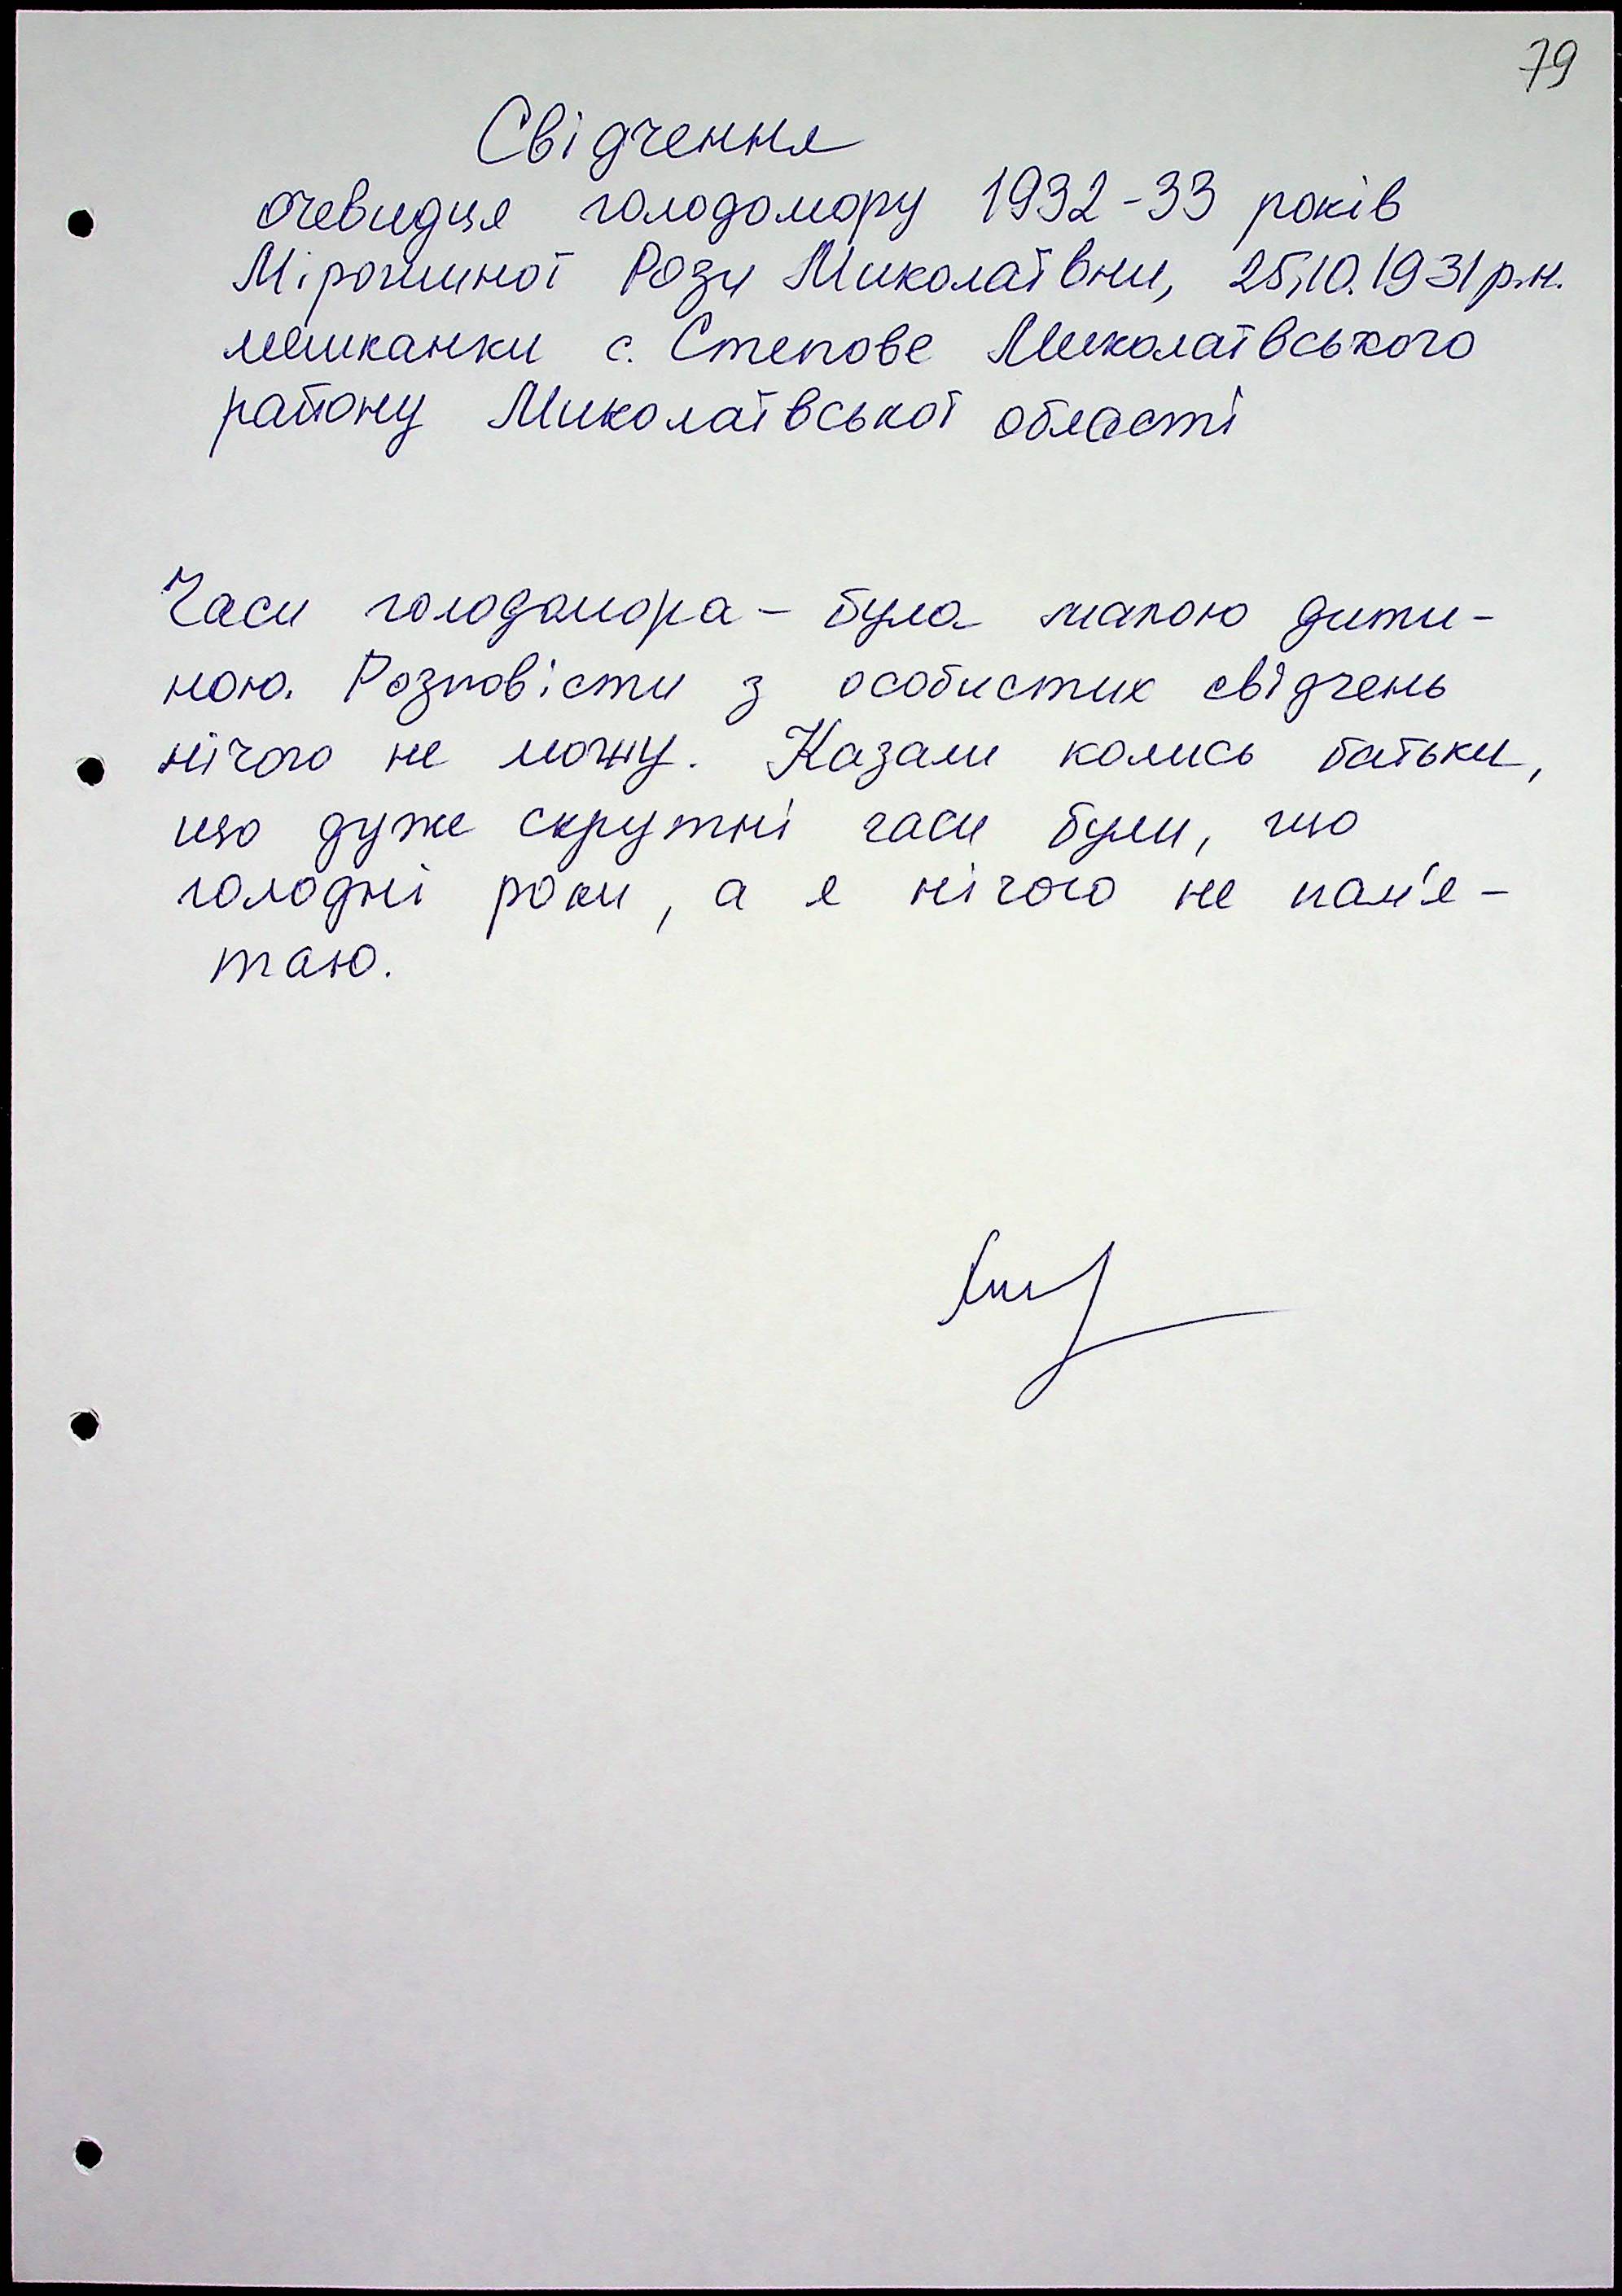 79
Свідчення
очевидця голодомору 1932-33 років
Рози Миколаївни, 25.10.1931 р.н.
мешканки с. Степове Миколаївського
району Миколаївської області
Часи голодомора - була малою дити-
ною. Розповісти з особистих свідчень
нічого не можу. Казали колись батьки,
що дуже скрутні часи були, що
голодні роки, а я нічого не пам'я-
таю.